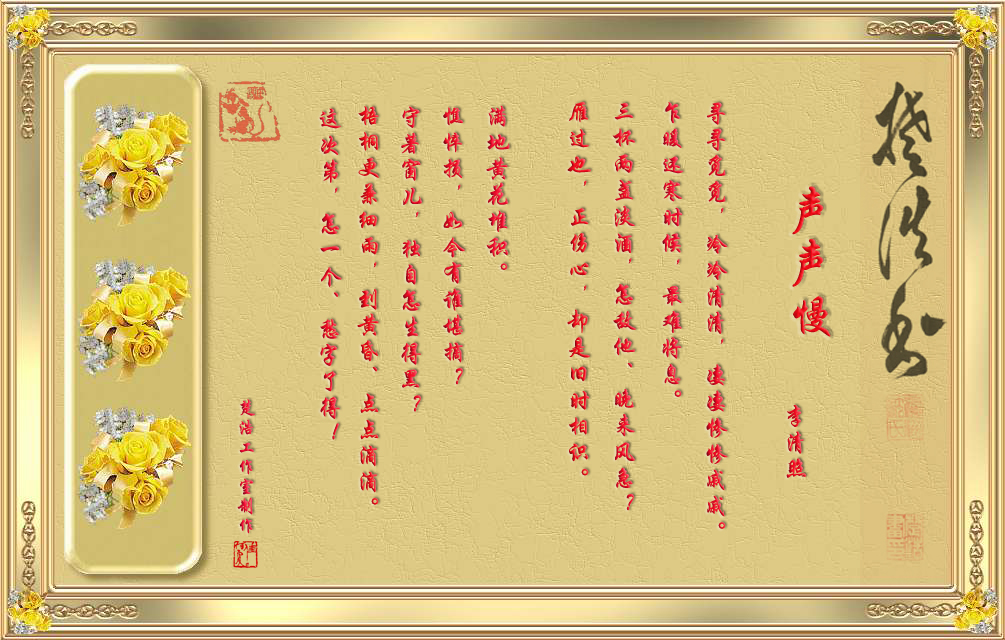 楚浩
声声慢
李清照
寻寻觅觅，冷冷清清，凄凄惨惨戚戚。
乍暖还寒时候，最难将息。
三杯两盏淡酒，怎敌他、晚来风急？
雁过也，正伤心，却是旧时相识。
满地黄花堆积。
憔悴损，如今有谁堪摘？
守著窗儿，独自怎生得黑？
梧桐更兼细雨，到黄昏、点点滴滴。
这次第，怎一个、愁字了得！
楚浩工作室制作